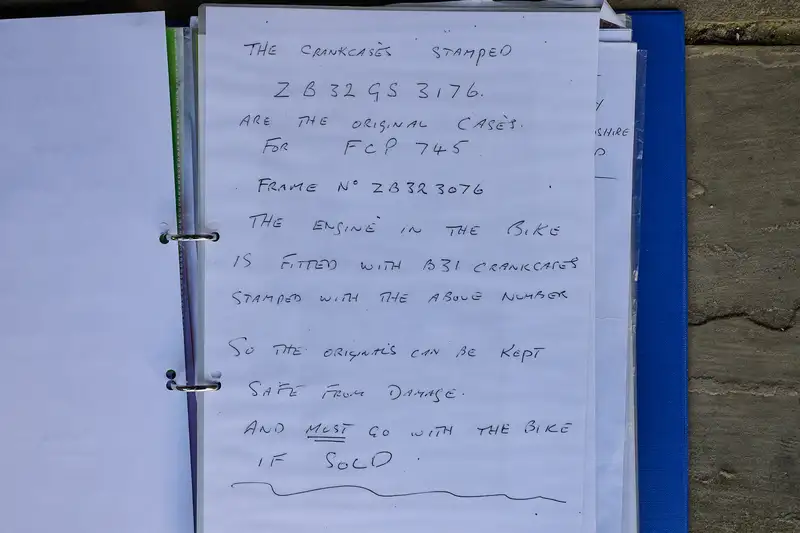 THE CRANKCASES STAMPED
ZB32GS 3176.
ARE THE ORIGINAL CASES.
FOR FCP 745
FRAME No ZB323076
THE ENGINE IN THE BIKE
IS FITTED WITH B31 CRANKCASES
STAMPED WITH THE ABOVE NUMBER
SO THE ORIGINALS CAN BE KEPT
SAFE FROM DAMAGE.
AND MUST GO WITH THE BIKE
IF SOLD.
SHIRE